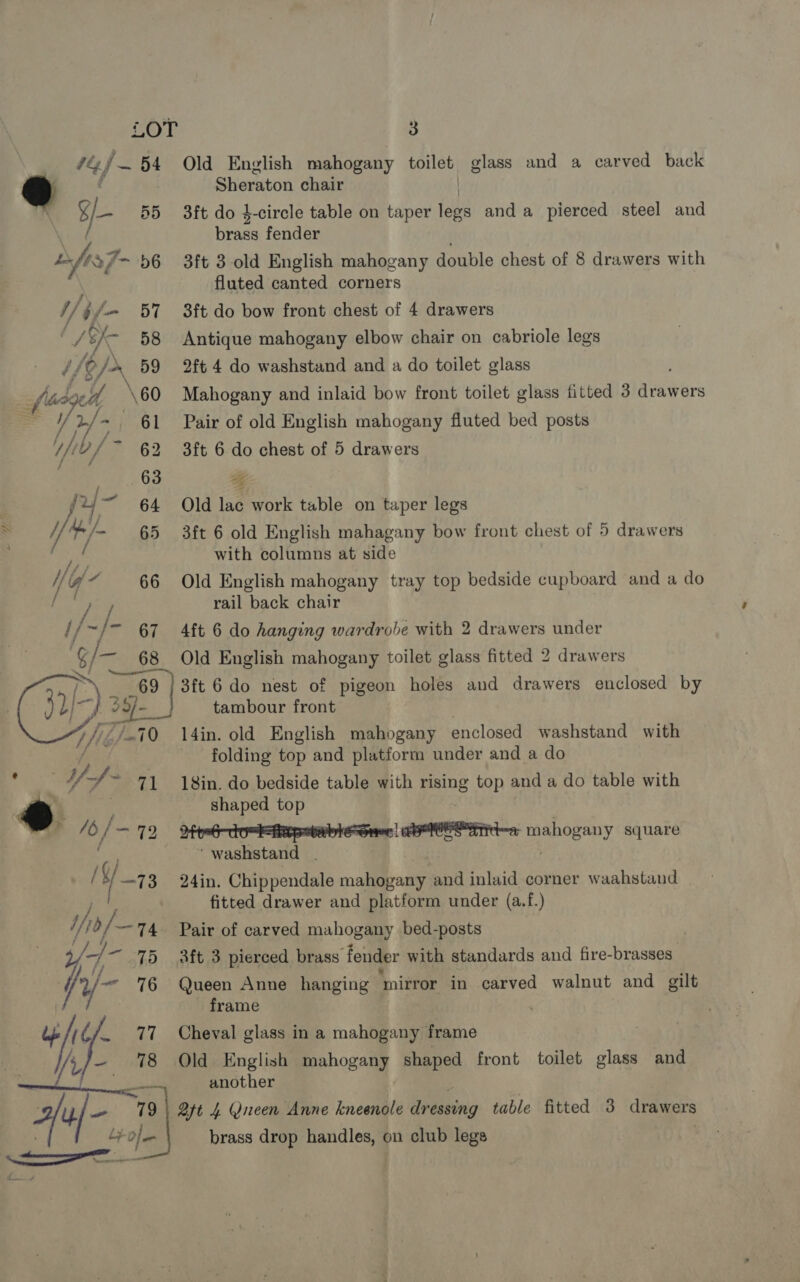 LOT 3
54 Old English mahogany toilet glass and a carved back
Sheraton chair
8/- 55 3ft do ½-circle table on taper legs and a pierced steel and
brass fender
56 3ft 3 old English mahogany double chest of 8 drawers with
fluted canted corners
57 3ft do bow front chest of 4 drawers
58 Antique mahogany elbow chair on cabriole legs
59 2ft 4 do washstand and a do toilet glass
60 Mahogany and inlaid bow front toilet glass fitted 3 drawers
61 Pair of old English mahogany fluted bed posts
62 3ft 6 do chest of 5 drawers
63
64 Old lac work table on taper legs
65 3ft 6 old English mahagany bow front chest of 5 drawers
with columns at side
66 Old English mahogany tray top bedside cupboard and a do
rail back chair
67 4ft 6 do hanging wardrobe with 2 drawers under
68 Old English mahogany toilet glass fitted 2 drawers
69 3ft 6 do nest of pigeon holes and drawers enclosed by
32/-) 39/- tambour front
70 14in. old English mahogany enclosed washstand with
folding top and platform under and a do
71 18in. do bedside table with rising top and a do table with
shaped top
16/- 72 mahogany square
washstand
73 24in. Chippendale mahogany and inlaid corner waahstand
fitted drawer and platform under (a.f.)
74 Pair of carved mahogany bed-posts
75 3ft 3 pierced brass fender with standards and fire-brasses
76 Queen Anne hanging mirror in carved walnut and gilt
frame
77 Cheval glass in a mahogany frame
78 Old English mahogany shaped front toilet glass and
another
79 2ft 4 Queen Anne kneenole dressing table fitted 3 drawers
brass drop handles, on club legs